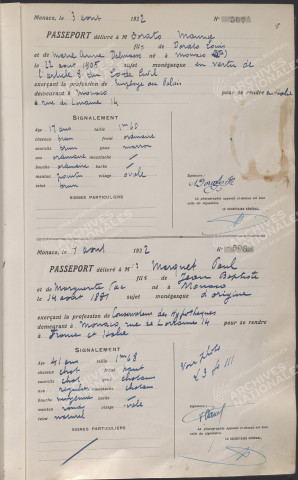 Monaco, le 3 août 1922 N°
PASSEPORT délivré à M Orato Maurice
fils de Dorato Louis
et de Marie Anne Delmasso né à Monaco
le 22 août 1905 sujet monégasque en vertu de
l'article 8 du Code Civil
exerçant la profession de Employé au Palais
demeurant à Monaco pour se rendre en Italie
rue de Lorraine 14
SIGNALEMENT
Age 17 ans taille 1m60
cheveux brun front ordinaire
sourcils brun yeux marron
nez ordinaire moustache
bouche ordinaire barbe
menton pointu visage ovale
teint brun
SIGNES PARTICULIERS
Signature :
La photographie apposée ci-dessus est bien
celle du signataire.
LE SECRÉTAIRE GÉNÉRAL,
Monaco, le 7 août 1922 N°
PASSEPORT délivré à M Marquet Paul
fils de Jean Baptiste
et de Marguerite né à Monaco
le 14 août 1881 sujet monégasque d'origine
exerçant la profession de Conservateur des Hypothèques
demeurant à Monaco, rue de Lorraine 14 pour se rendre
France et Italie
SIGNALEMENT
Age 41 ans taille 1m68
cheveux chat front haut
sourcils chat yeux
nez régulier moustache chatain
bouche moyenne barbe
menton rond visage ovale
teint naturel
Voir photo
L 3 f° 111
SIGNES PARTICULIERS
Signature :
La photographie apposée ci-dessus est bien
celle du signataire.
LE SECRÉTAIRE GÉNÉRAL,